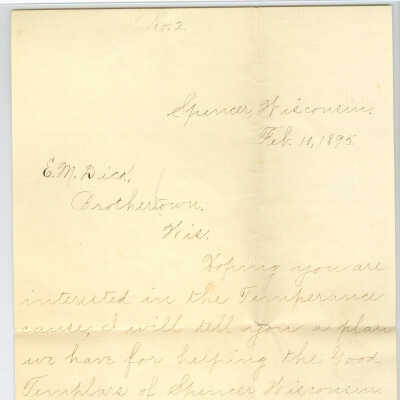 No. 2.
Spencer, Wisconsin.
Feb. 10, 1895.
E. M. Dick,
Brothertown,
Wis.
Hoping you are
interested in the Temperance
cause, I will tell you a plan
we have for helping the Good
Templars of Spencer Wisconsin